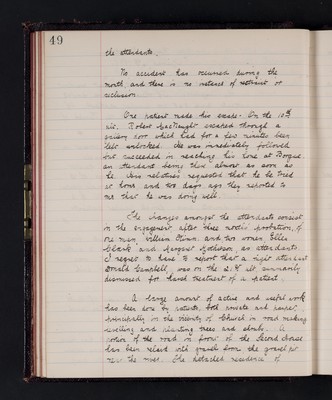 49
the attendants.
No accident has occurred during the
month and there is no instance of restraint or
seclusion.
One patient made his escape. On the 10th
ult. Robert escaped through a
gallery door which had for a few minutes been
left unlocked. He was immediately followed
but succeeded in reaching his home at Borgue
an attendant being there almost as soon as
he. His relatives requested that he be tried
at home and two days ago they reported to
me that he was doing well.
The changes amongst the attendants consist
in the engagement after three months probation, of
one man, William and two women, Ellen
Clark and Margaret as attendants.
I regret to have to report that a night attendant
Donald Campbell, was on the ult summarily
dismissed for harsh treatment of a patient.
A large amount of active and useful work
has been done by patients, both private and pauper,
principally in the vicinity of Church in road making
and planting trees and shrubs. A
portion of the road in front of the Second House
has been relaid with gravel from the gravel pit
near the river. The detached residence of